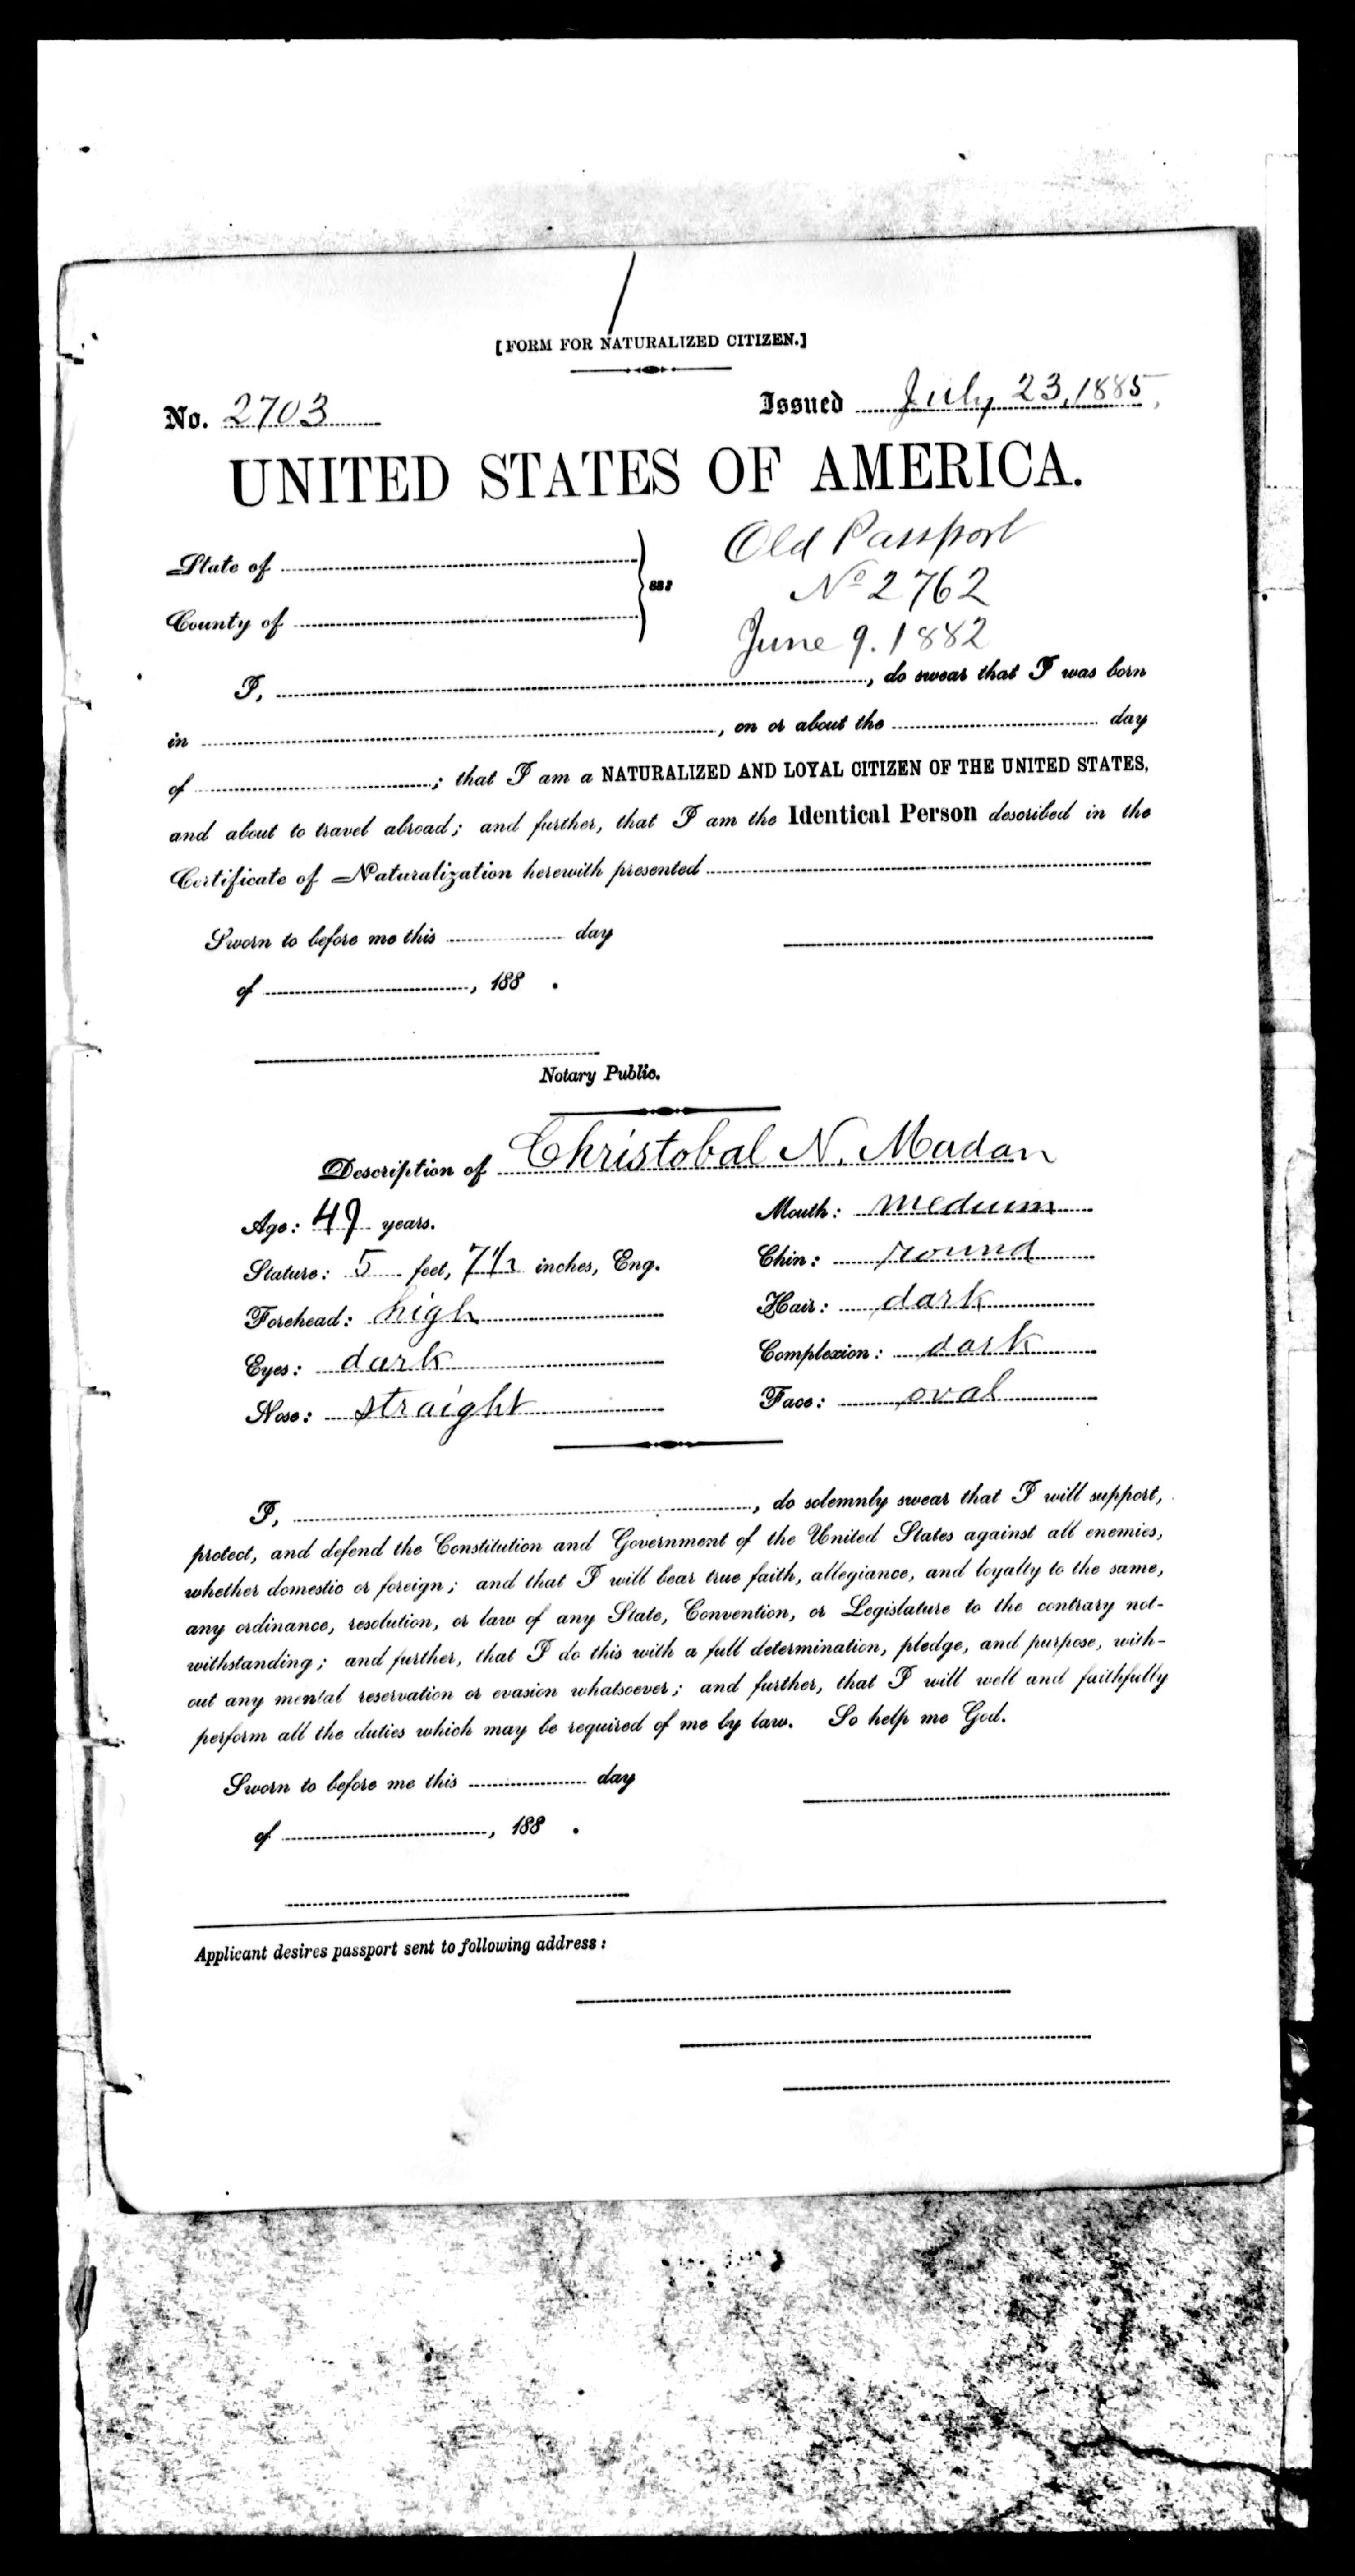 [FORM FOR NATURALIZED CITIZEN.]
No. 2703 Issued July 23, 1885,
UNITED STATES OF AMERICA.
Old Passport
State of
ss:
No 2762
County of
June 9. 1882
I, , do swear that I was born
in , on or about the day
of ; that I am a NATURALIZED AND LOYAL CITIZEN OF THE UNITED STATES,
and about to travel abroad; and further, that I am the Identical Person described in the
Certificate of Naturalization herewith presented
Sworn to before me this day
of , 188 .
Notary Public.
Description of Christobal N. Madan
Age: 49 years. Mouth: medium
Stature: 5 feet, 7 1/2 inches, Eng. Chin: round
Forehead: high Hair: dark
Eyes: dark Complexion: dark
Nose: straight Face: oval
I, , do solemnly swear that I will support,
protect, and defend the Constitution and Government of the United States against all enemies,
whether domestic or foreign; and that I will bear true faith, allegiance, and loyalty to the same,
any ordinance, resolution, or law of any State, Convention, or Legislature to the contrary not-
withstanding; and further, that I do this with a full determination, pledge, and purpose, with-
out any mental reservation or evasion whatsoever; and further, that I will well and faithfully
perform all the duties which may be required of me by law. So help me God.
Sworn to before me this day
of , 188 .
Applicant desires passport sent to following address: